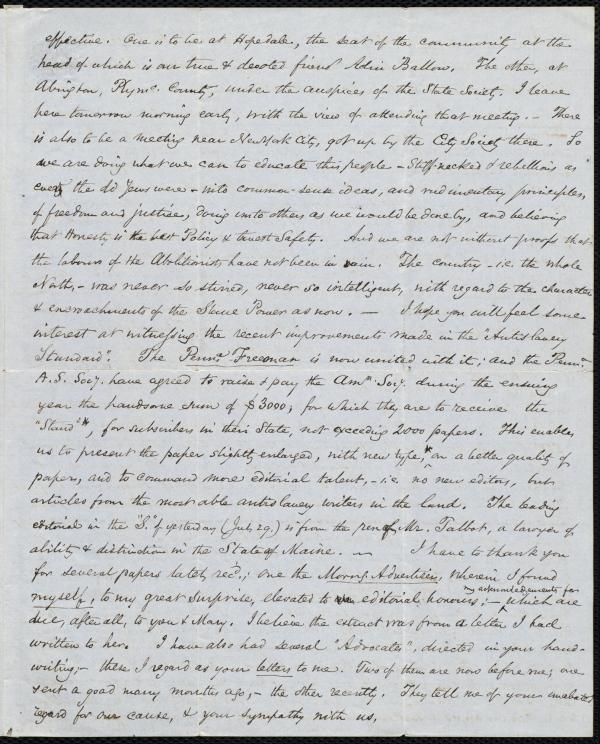 effective. One is to be at Hopedale, the seat of the community at the
head of which is our true & devoted friend Adin Ballou. The other, at
Abington, Plymo. County, under the auspices of the State Society. I leave
here tomorrow morning early, with the view of attending that meeting. - There
is also to be a meeting near New York City, got up by the City Society there. So
we are doing what we can to educate this people - Stiff-necked & rebellious as
ever the old Jews were - into common-sense ideas, and rudimentary principles,
of freedom and justice, doing unto others as we would be done by, and believing
that Honesty is the best Policy & truest Safety. And we are not without proofs that
the labours of the Abolitionists have not been in vain. The country - i.e. the whole
North, - was never so stirred, never so intelligent, with regard to the character
& encroachments of the Slave Power as now. - I hope you will feel some
interest at witnessing the recent improvements made in the "Antislavery
Standard". The Penna. Freeman is now united with it; and the Penna.
A.S. Socy. have agreed to raise & pay the Amn. Socy. during the ensuing
year the handsome sum of $3000; for which they are to receive the
"Stand"*, for subscribers in their State, not exceeding 2000 papers. This enables
us to present the paper slightly enlarged, with new type,* on a better quality of
paper, and to command more editorial talent, - i.e. no new editors, but
articles from the most able antislavery writers in the land. The leading
editorial in the "S. of yesterday (July 29.) is from the pen of Mr. Talbot, a lawyer of
ability & distinction in the State of Maine. - I have to thank you
for several papers lately recd.; one the Morng. Advertiser, wherein I found
myself, to my great surprise, elevated to editorial honours; - my acknowledgements for which are
due, after all, to you & Mary. I believe the extract was from a letter I had
written to her. I have also had several "Advocates", directed in your hand-
writing; - these I regard as your letters to me. Two of them are now before me; one
sent a good many months ago; - the other recently. They tell me of your unabated
regard for our cause, & your sympathy with us,